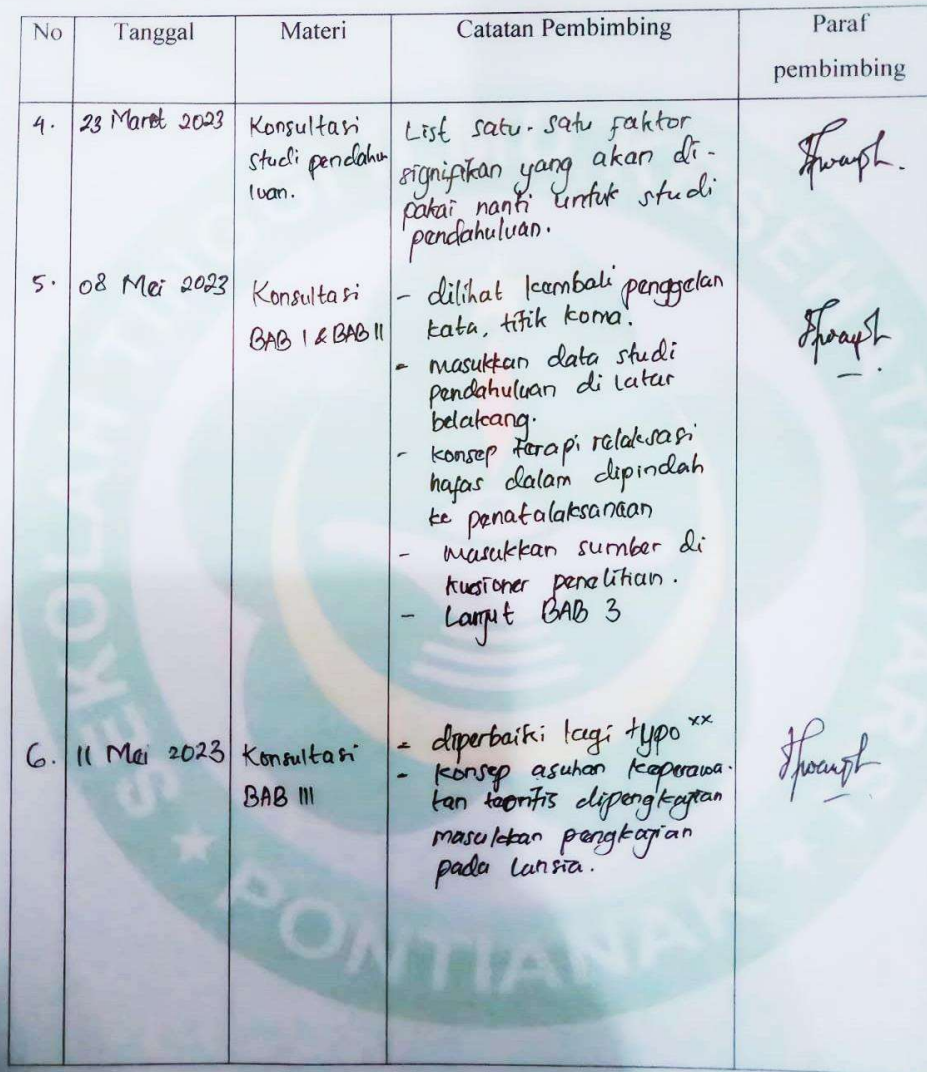 No Tanggal Materi Catatan Pembimbing Paraf
pembimbing
4. 23 Maret 2023 Konsultasi List satu-satu faktor
studi pendahu signifikan yang akan di-
luan. pakai nanti untuk studi
pendahuluan.
5. 08 Mei 2023 Konsultasi - dilihat kembali penggelan
BAB I & BAB II kata, titik koma.
- masukkan data studi
pendahuluan di latar
belakang.
- konsep terapi relaksasi
nafas dalam dipindah
ke penatalaksanaan
- masukkan sumber di
kusioner penelitian.
- Lanjut BAB 3
6. 11 Mei 2023 Konsultasi - diperbaiki lagi typo xx
BAB III - konsep asuhan keperawa-
tan teoritis dipengkajian
masukkan pengkajian
pada lansia.
SEKOLAH
PONTIANAK